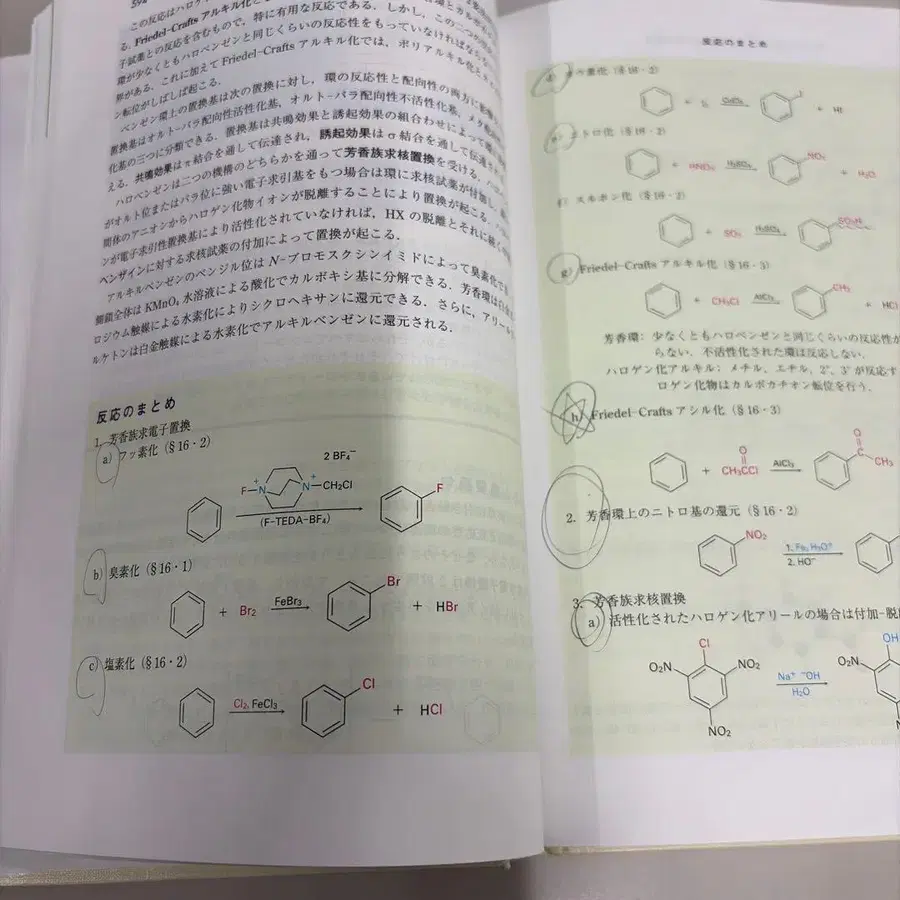 594
この反応はハロゲ
る. Friedel-Crafts アルキル化と
子試薬との反応を含むもので，特に有用な反応である．しかし，この二つの
環が少なくともハロベンゼンと同じくらいの反応性をもっていなければならない
界がある．これに加えて Friedel-Crafts アルキル化では，ポリアルキル化と
ン転位がしばしば起こる．
ベンゼン環上の置換基は次の置換に対し，環の反応性と配向性の両方に影響
置換基はオルト-パラ配向性活性化基，オルト-パラ配向性不活性化基，メタ配向
化基の三つに分類できる．置換基は共鳴効果と誘起効果の組合わせによって環に
える．共鳴効果はπ結合を通して伝達され，誘起効果はσ結合を通して伝達され
ハロベンゼンは二つの機構のどちらかを通って芳香族求核置換を受ける．ハロ
がオルト位またはパラ位に強い電子求引基をもつ場合は環に求核試薬が付加し
間体のアニオンからハロゲン化物イオンが脱離することにより置換が起こる．
ンが電子求引性置換基により活性化されていなければ，HX の脱離とそれに続く
ベンザインに対する求核試薬の付加によって置換が起こる．
アルキルベンゼンのベンジル位は N-ブロモスクシンイミドによって臭素化でき
側鎖全体は KMnO₄ 水溶液による酸化でカルボキシ基に分解できる．芳香環は白金
ロジウム触媒による水素化によりシクロヘキサンに還元できる．さらに，アリール
ルケトンは白金触媒による水素化でアルキルベンゼンに還元される．
反応のまとめ
1. 芳香族求電子置換
a) フッ素化（§16・2）
2 BF₄⁻
F—N⁺ N⁺—CH₂Cl
(F-TEDA-BF₄)
F
b) 臭素化（§16・1）
+ Br₂ FeBr₃ Br + HBr
c) 塩素化（§16・2）
Cl₂, FeCl₃ Cl + HCl
反応のまとめ
d) ヨウ素化（§16・2）
+ I₂ CuCl₂ I + HI
e) ニトロ化（§16・2）
+ HNO₃ H₂SO₄ NO₂ + H₂O
f) スルホン化（§16・2）
+ SO₃ H₂SO₄ SO₃H
g) Friedel-Crafts アルキル化（§16・3）
+ CH₃Cl AlCl₃ CH₃ + HCl
芳香環： 少なくともハロベンゼンと同じくらいの反応性が
らない．不活性化された環は反応しない．
ハロゲン化アルキル： メチル，エチル，2°，3° が反応す
ロゲン化物はカルボカチオン転位を行う．
h) Friedel-Crafts アシル化（§16・3）
+ CH₃CCl O AlCl₃ C O CH₃
2. 芳香環上のニトロ基の還元（§16・2）
NO₂ 1. Fe, H₃O⁺
2. HO⁻
3. 芳香族求核置換
a) 活性化されたハロゲン化アリールの場合は付加-脱
Cl OH
O₂N NO₂ Na⁺ ⁻OH O₂N
H₂O
NO₂